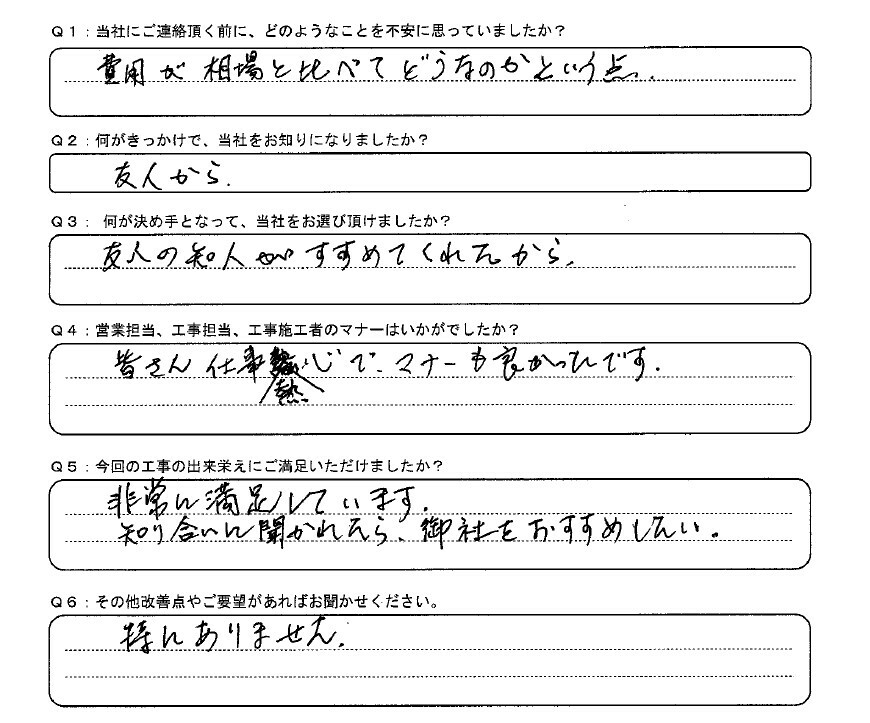 Q1：当社にご連絡頂く前に、どのようなことを不安に思っていましたか？
費用が相場と比べてどうなのかという点。
Q2：何がきっかけで、当社をお知りになりましたか？
友人から。
Q3： 何が決め手となって、当社をお選び頂けましたか？
友人の知人がすすめてくれたから。
Q4：営業担当、工事担当、工事施工者のマナーはいかがでしたか？
皆さん仕事熱心で、マナーも良かったです。
Q5：今回の工事の出来栄えにご満足いただけましたか？
非常に満足しています。
知り合いに聞かれたら、御社をおすすめしたい。
Q6：その他改善点やご要望があればお聞かせください。
特にありません。